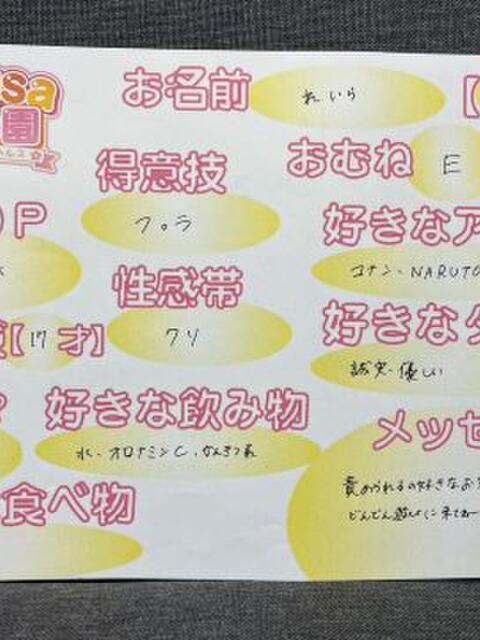 sa
お名前 れいら 【
園
得意技 おむね E
P フェラ 好きなア
性感帯 コナン、NARUTO
【17才】 クリ 好きな
誠実・優しい
好きな飲み物 メッセ
水、オロナミンC、
食べ物 責められるの好きなお
どんどん